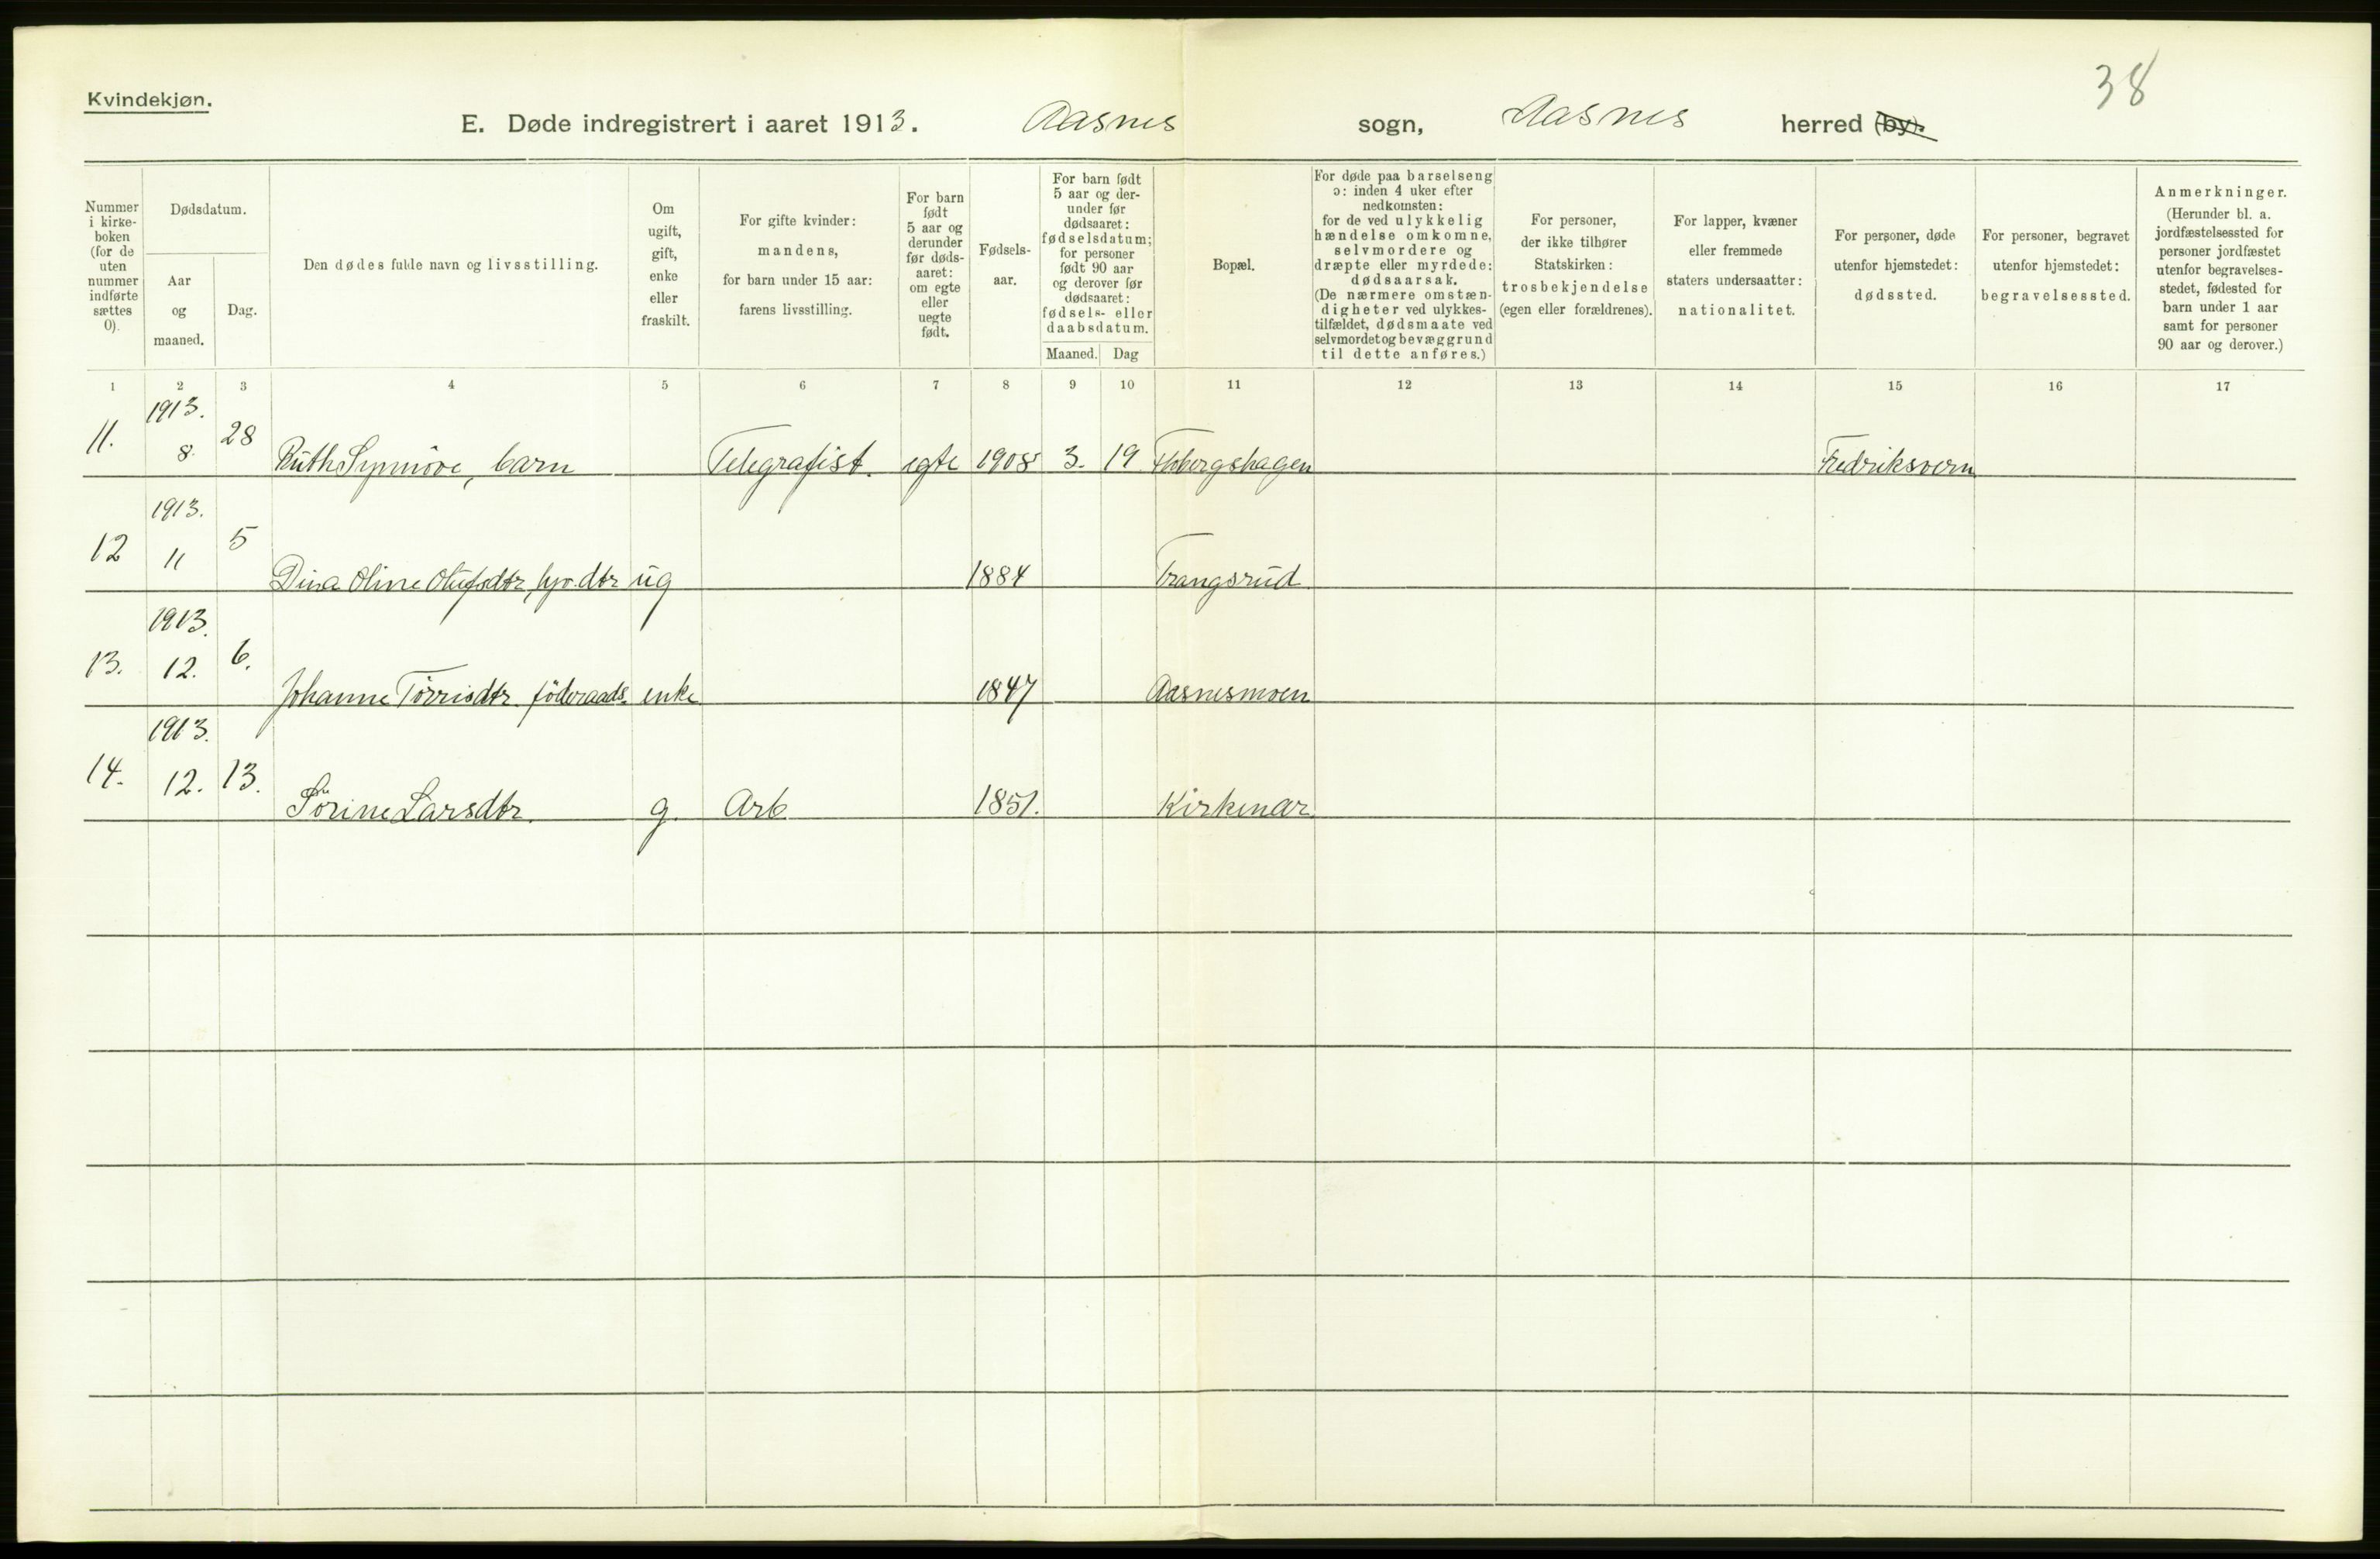 38
Kvindekjøn.
E. Døde indregistrert i aaret 1913. Aasnes sogn, Aasnes herred (by).
Nummer i kirke- boken (for de uten nummer indførte sættes 0).
Dødsdatum.
Aar og maaned.
Dag.
Den dødes fulde navn og livsstilling.
Om ugift, gift, enke eller fraskilt.
For gifte kvinder: mandens, for barn under 15 aar: farens livsstilling.
For barn født 5 aar og derunder før døds- aaret: om egte eller uegte født.
Fødsels- aar.
For barn født 5 aar og der- under før dødsaaret: fødselsdatum; for personer født 90 aar og derover før dødsaaret: fødsels- eller daabsdatum.
Maaned. Dag
Bopæl.
For døde paa barselseng ɔ: inden 4 uker efter nedkomsten: for de ved ulykkelig hændelse omkomne, selvmordere og dræpte eller myrdede: dødsaarsak. (De nærmere omstæn- digheter ved ulykkes- tilfældet, dødsmaate ved selvmordet og bevæggrund til dette anføres.)
For personer, der ikke tilhører Statskirken: trosbekjendelse (egen eller forældrenes).
For lapper, kvæner eller fremmede staters undersaatter: nationalitet.
For personer, døde utenfor hjemstedet: dødssted.
For personer, begravet utenfor hjemstedet: begravelsessted.
Anmerkninger. (Herunder bl. a. jordfæstelsessted for personer jordfæstet utenfor begravelses- stedet, fødested for barn under 1 aar samt for personer 90 aar og derover.)
1 2 3 4 5 6 7 8 9 10 11 12 13 14 15 16 17
11. 1913. 8. 28 Ruth Synnöve, barn Telegrafist. egte 1908 3. 19 Fredriksvern
12 1913. 11 5 Dina Oline Olufsdtr, ug 1884 Trangsrud
13. 1913. 12. 6. Johanne Törrisdtr. föderaads enke 1847 Aasnesmoen
14. 1913. 12. 13. Sörine Larsdtr. g. Arb 1851. Kirkenær